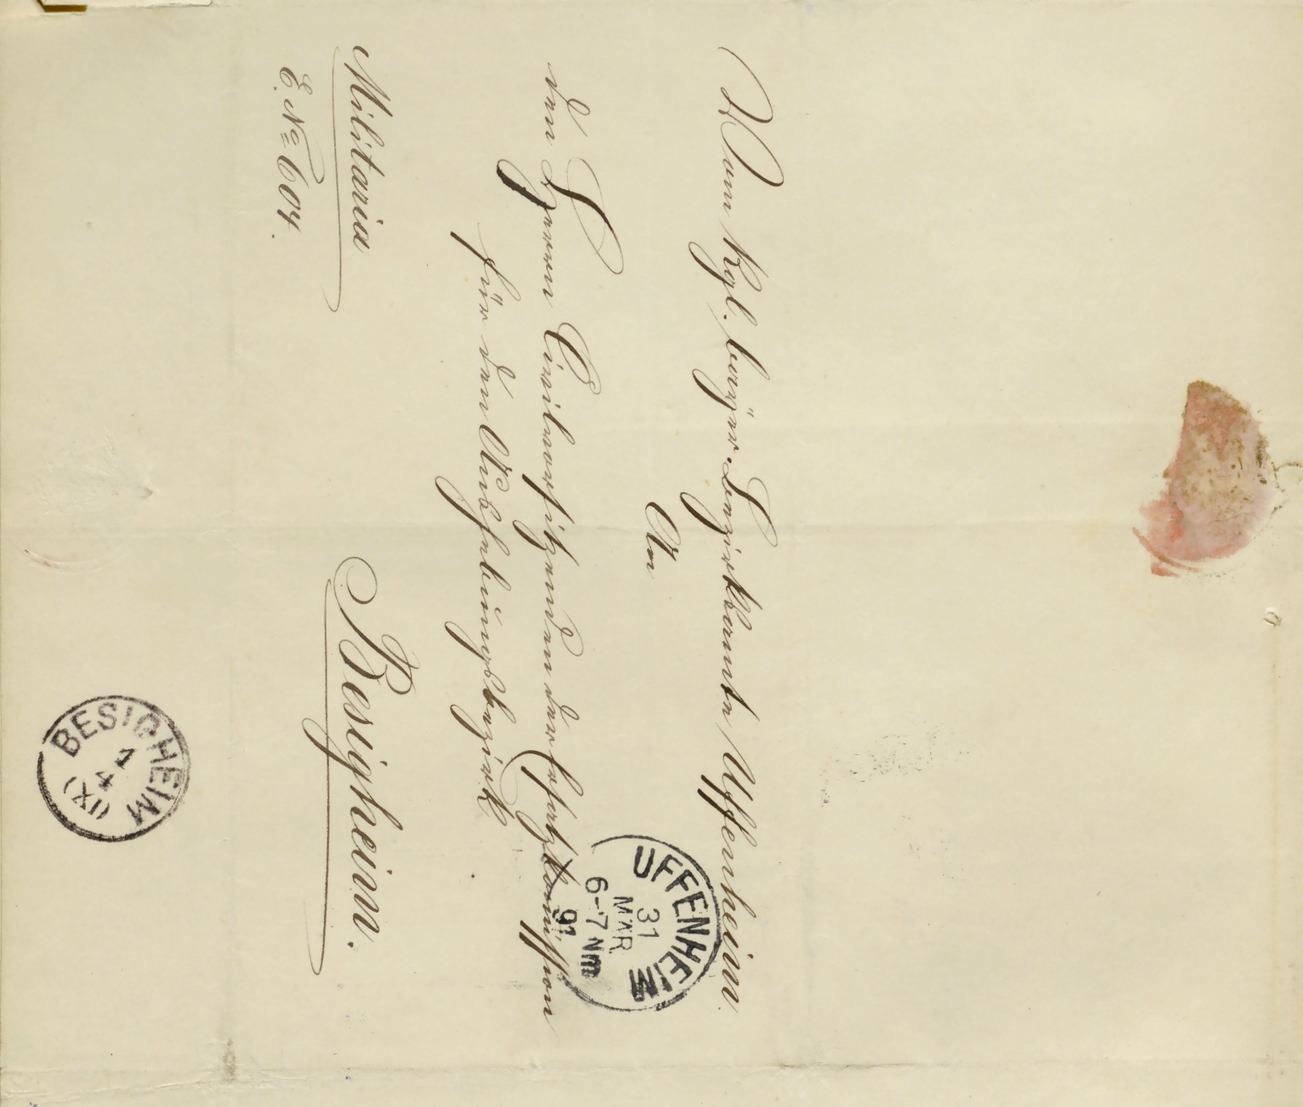 Vom kgl. bayer. Bezirksamte Uffenheim.
An
den Herrn Civilvorsitzenden der Ersatzkommission
für den Aushebungsbezirk
Besigheim.
Militaria
E. No 604.
UFFENHEIM
31
MAR
6-7 Nm
91
BESIGHEIM
1
4
(IX)